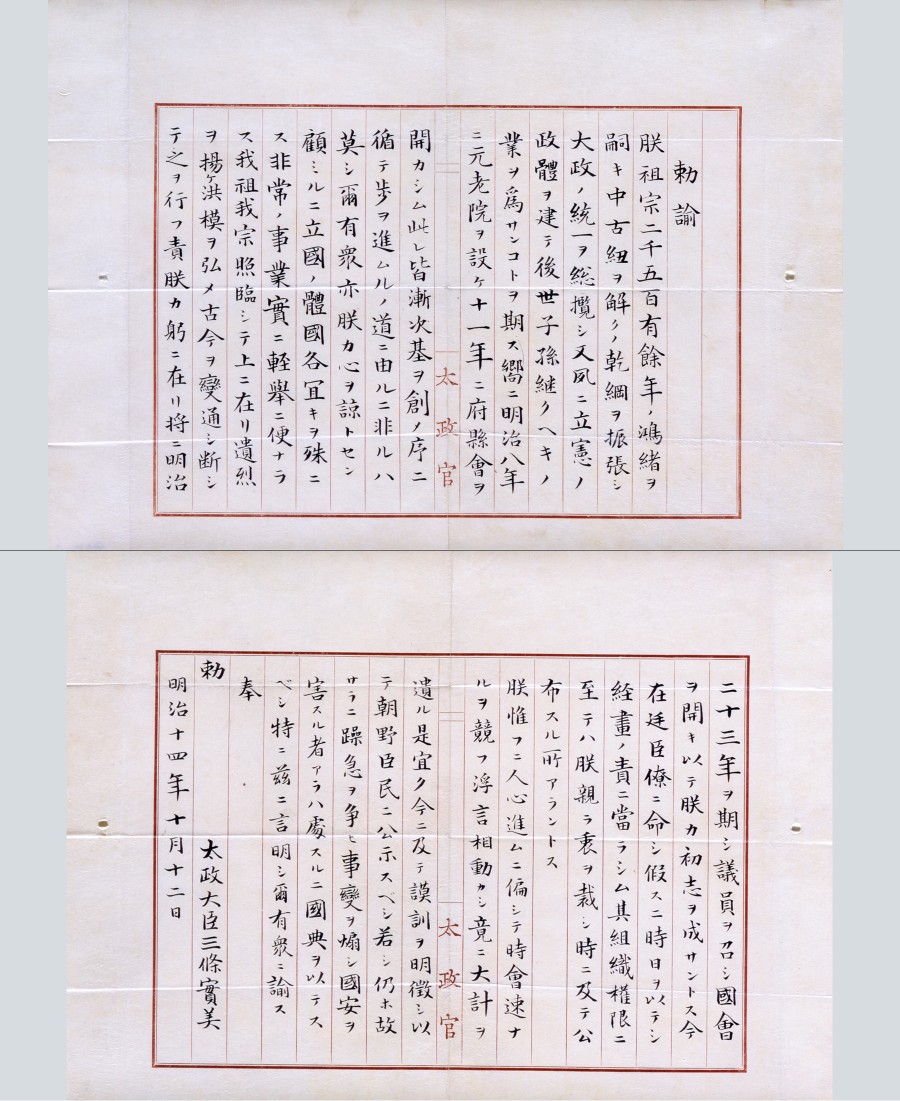 勅諭
朕祖宗二千五百有餘年ノ鴻緒ヲ
嗣キ中古紐ヲ解クノ乾綱ヲ振張シ
大政ノ統一ヲ総攬シ又夙ニ立憲ノ
政體ヲ建テ後世子孫継クヘキノ
業ヲ為サンコトヲ期ス嚮ニ明治八年
ニ元老院ヲ設ケ十一年ニ府縣會ヲ
太政官
開カシム此レ皆漸次基ヲ創メ序ニ
循テ歩ヲ進ムルノ道ニ由ルニ非ルハ
莫シ爾有衆亦朕カ心ヲ諒トセン
顧ミルニ立國ノ體國各宜キヲ殊ニ
ス非常ノ事業實ニ輕舉ニ便ナラ
ス我祖我宗照臨シテ上ニ在リ遺烈
ヲ揚ケ洪模ヲ弘メ古今ヲ變通シ断シ
テ之ヲ行フ責朕カ躬ニ在リ将ニ明治
二十三年ヲ期シ議員ヲ召シ國會
ヲ開キ以テ朕カ初志ヲ成サントス今
在廷臣僚ニ命シ假スニ時日ヲ以テシ
経畫ノ責ニ當ラシム其組織權限ニ
至テハ朕親ラ衷ヲ裁シ時ニ及テ公
布スル所アラントス
朕惟フニ人心進ムニ偏シテ時會速ナ
ルヲ競フ浮言相動カシ竟ニ大計ヲ
太政官
遺ル是宜ク今ニ及テ謨訓ヲ明徴シ以
テ朝野臣民ニ公示スベシ若シ仍ホ故
サラニ躁急ヲ争ヒ事變ヲ煽シ國安ヲ
害スル者アラハ處スルニ國典ヲ以テス
ベシ特ニ茲ニ言明シ爾有衆ニ諭ス
奉
勅　太政大臣三條實美
明治十四年十月十二日